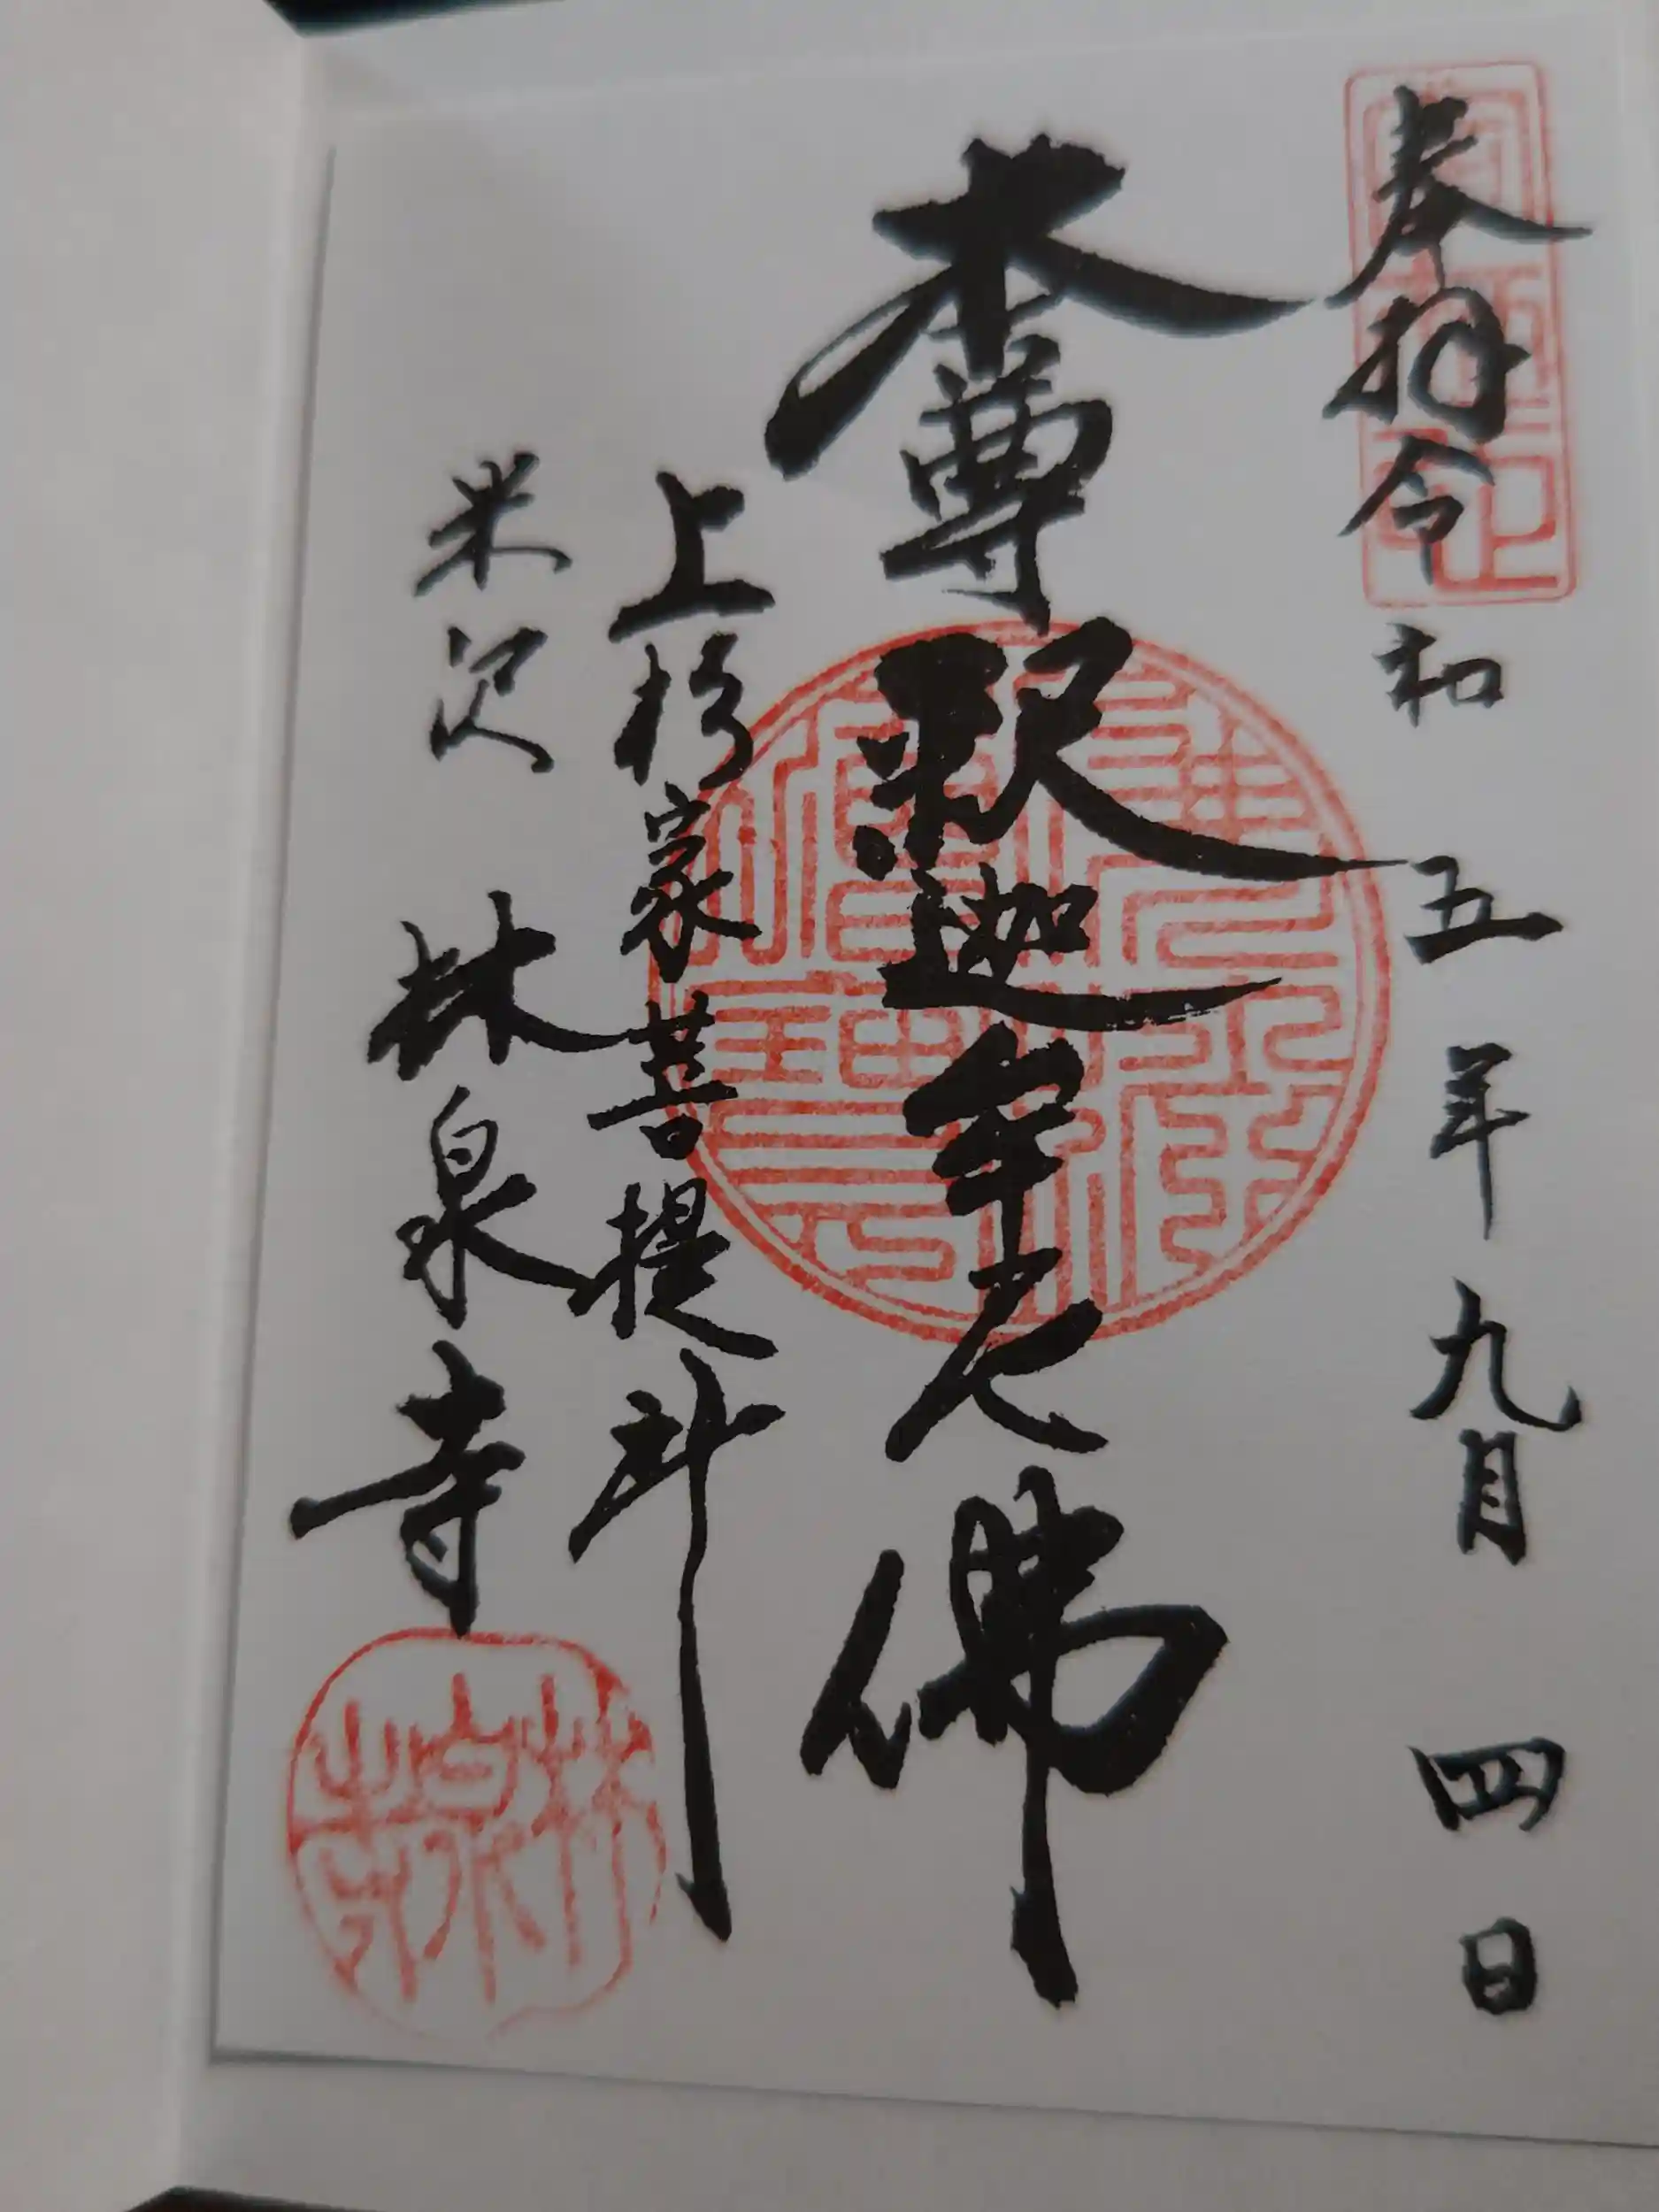 奉拝 令和五年九月四日
本尊釈迦牟尼佛
上杉家菩提所
米沢 林泉寺
林泉寺